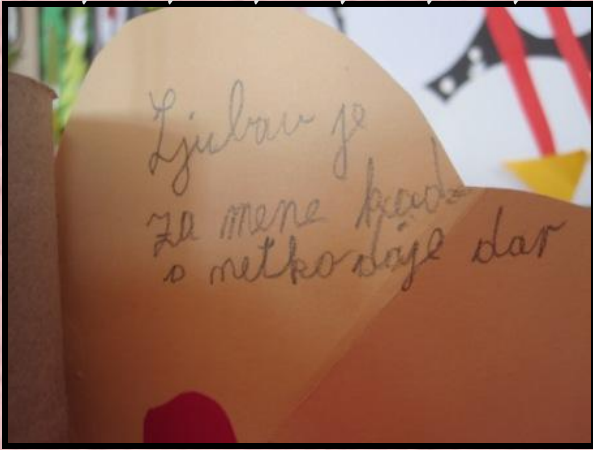 Ljubav je
za mene kad
netko daje dar